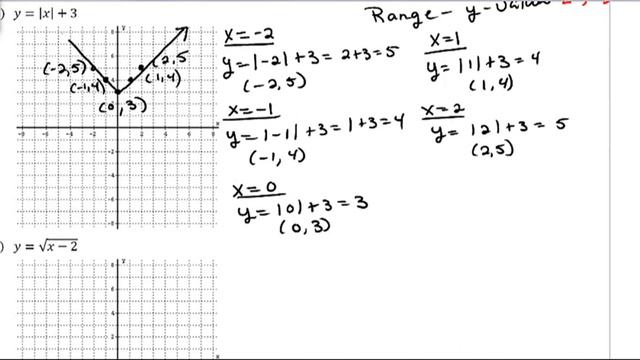 ) y = |x| + 3
Range - y-
x = -2
y = |-2| + 3 = 2+3 = 5
(-2, 5)
x = -1
y = |-1| + 3 = 1+3 = 4
(-1, 4)
x = 0
y = |0| + 3 = 3
(0, 3)
x = 1
y = |1| + 3 = 4
(1, 4)
x = 2
y = |2| + 3 = 5
(2, 5)
(-2, 5)
(-1, 4)
(0, 3)
(2, 5
(1, 4)
) y = √x − 2